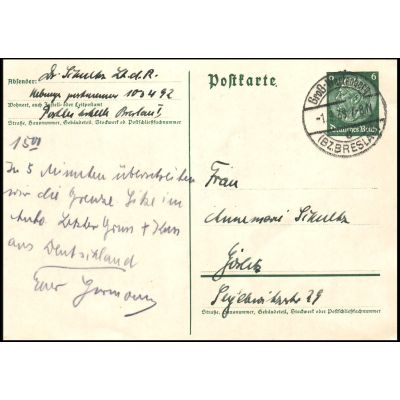 Absender: Dr. Schultz Lt.d.R.
Feldpostnummer 103492
Wohnort, auch Zustell- oder Leitpostamt
Postleitstelle Breslau I
Straße, Hausnummer, Gebäudeteil, Stockwerk od. Postschließfachnummer
15 00
In 5 Minuten überschreiten
wir die Grenze. Sitze im
Auto. Letzter Gruss + Kuss
aus Deutschland
Euer Hermann
Postkarte
6
Deutsches Reich
(BZ.BRESLAU)
Frau
Annemarie Schultz
Görlitz
29
Straße, Hausnummer, Gebäudeteil, Stockwerk oder Postschließfachnummer